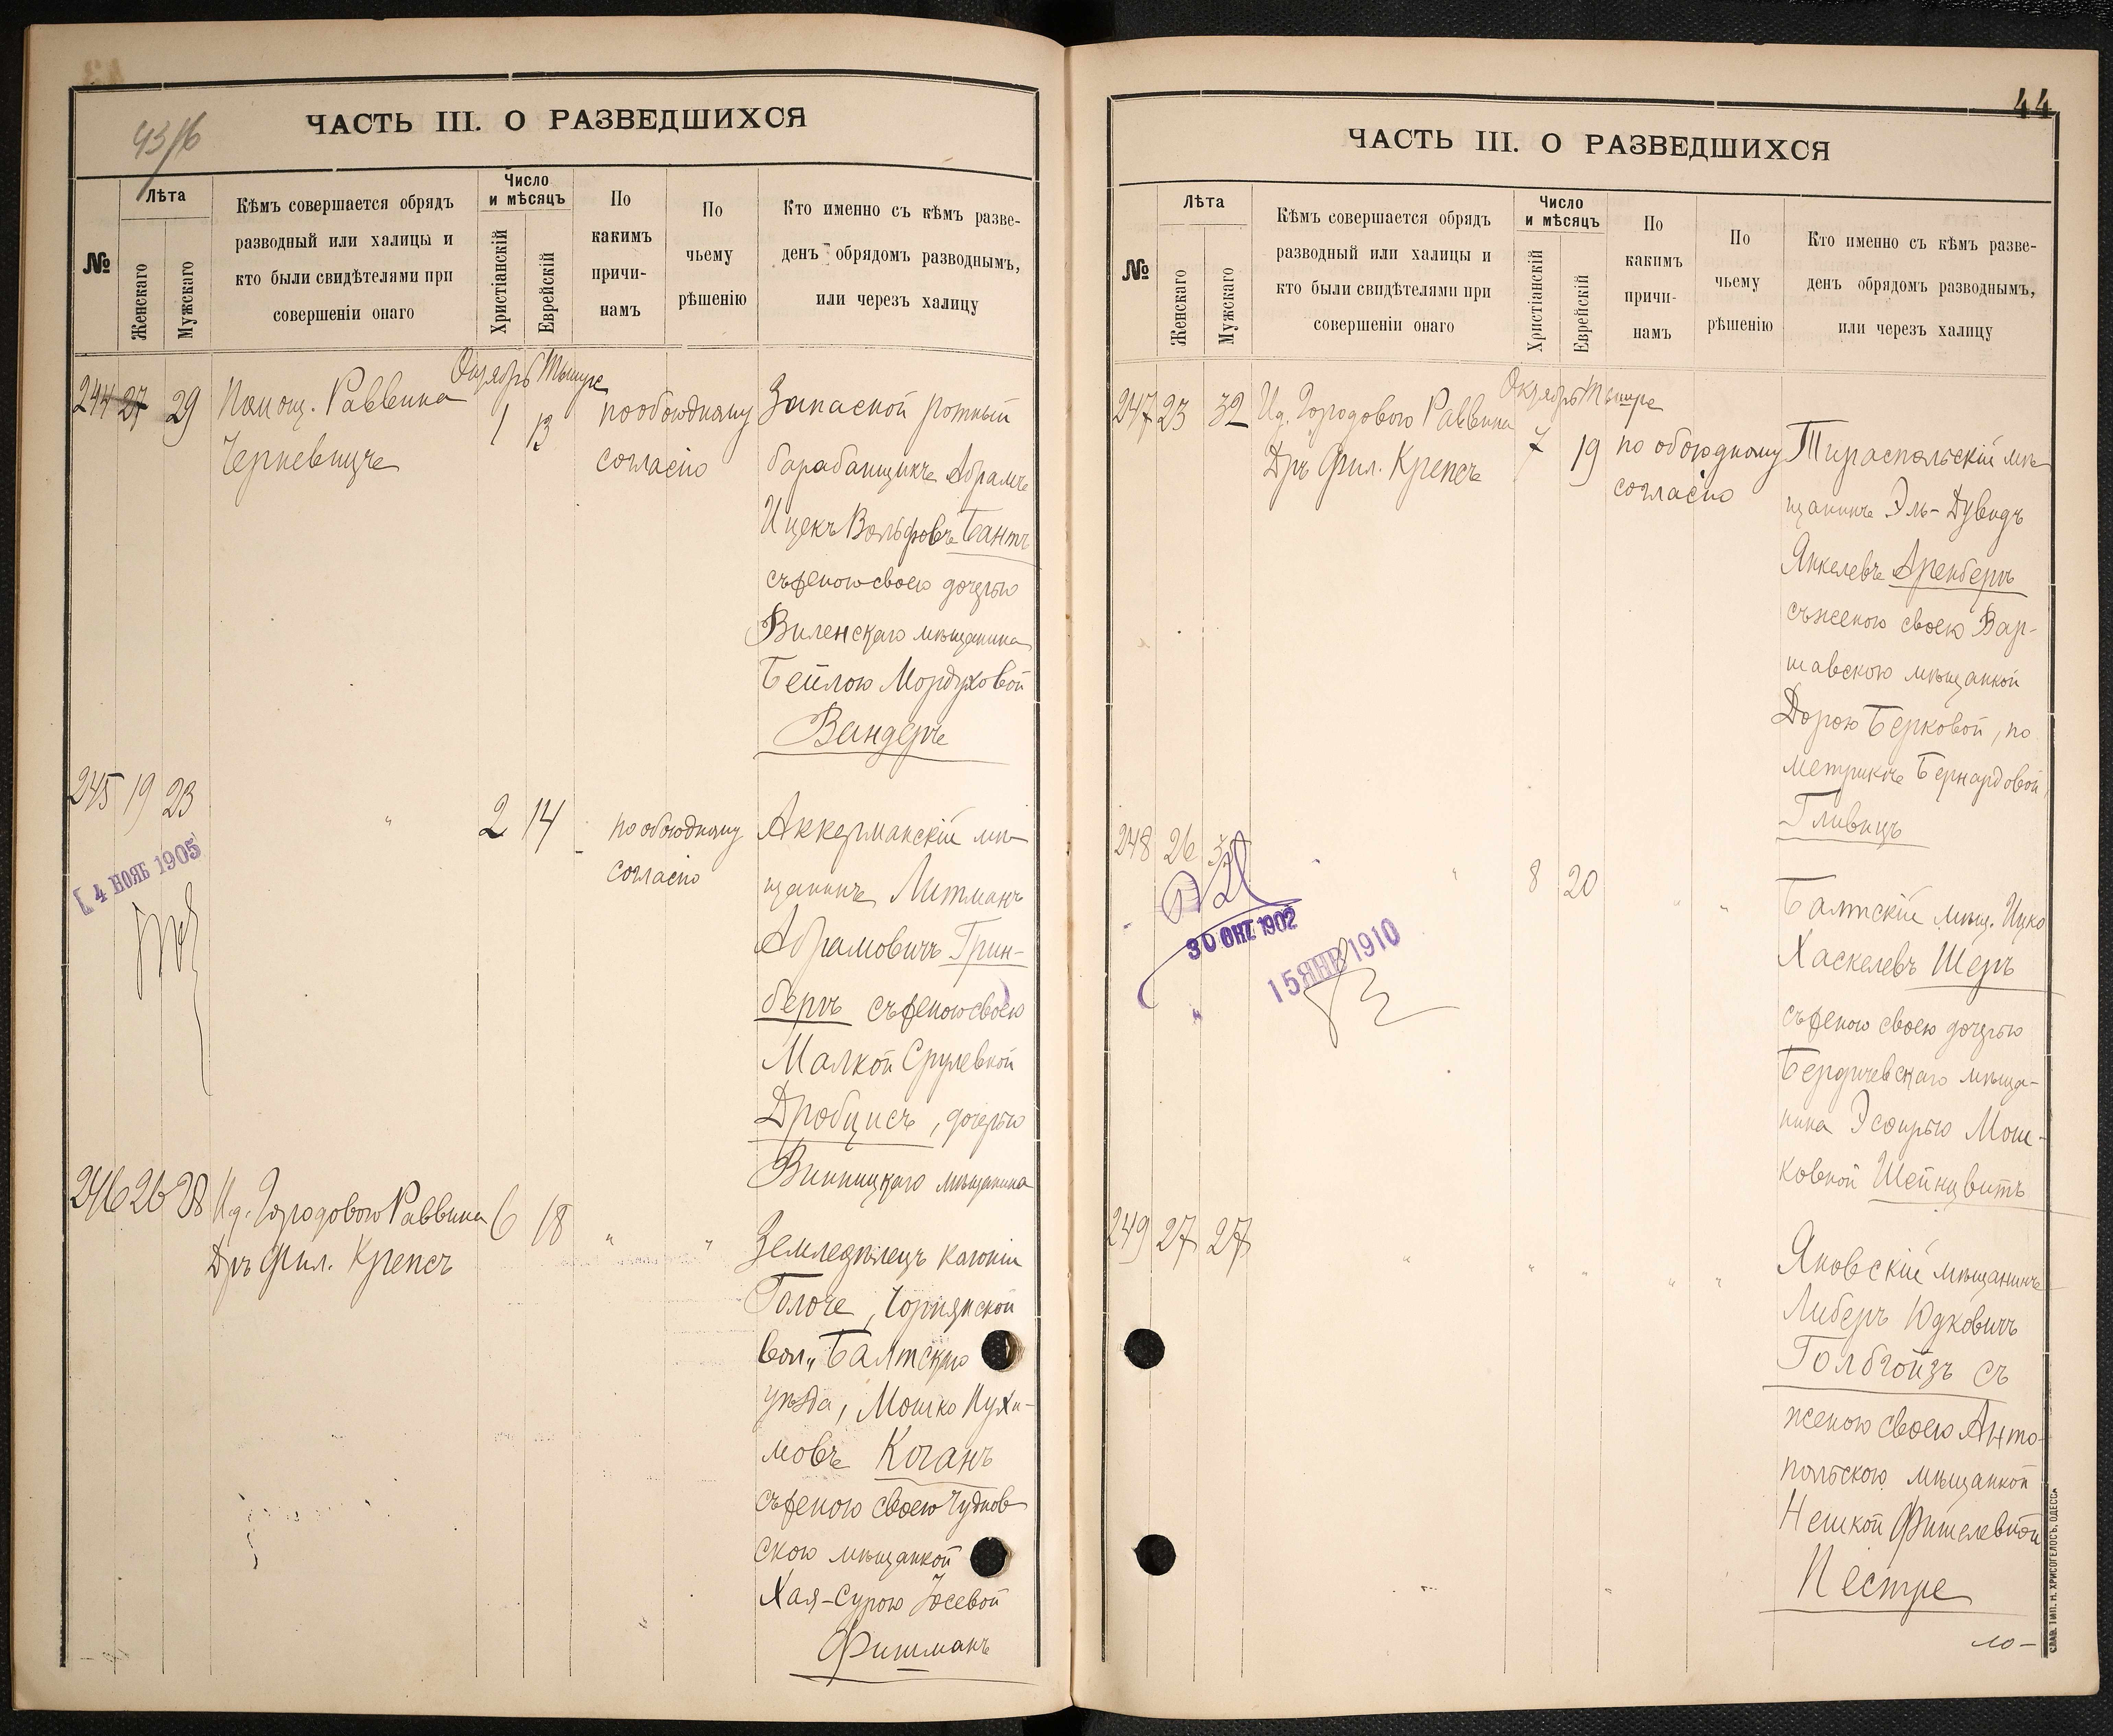 43/6
ЧАСТЬ III. О РАЗВЕДШИХСЯ
№
Лѣта
Женскаго
Мужскаго
Кѣмъ совершается обрядъ
разводный или халицы и
кто были свидѣтелями при
совершеніи онаго
Число
и мѣсяцъ
Христіанскій
Еврейскій
По
какимъ
причи-
намъ
По
чьему
рѣшенію
Кто именно съ кѣмъ разве-
денъ обрядомъ разводнымъ,
или черезъ халицу
Октябрь Тышре
244 27 29 Помощ. Раввина 1 13 по обоюдному Запасной ротный
Черневицъ согласію барабанщикъ Абрамъ
Ицекъ Вольфовъ Бантъ
съ женою своею дочерью
Виленскаго мѣщанина
Бейлою Мордуховой
Вандеръ
245 19 23 " 2 14 по обоюдному Аккерманскій мѣ-
согласію щанинъ Литманъ
4 НОЯБ 1905
Абрамовичъ Грин-
бергъ съ женою своею
Малкой Срулевной
Дробцисъ, дочерью
Винницкаго мѣщанина
246 26 28 Ид. Городового Раввина 6 18 " " Земледѣлецъ колоніи
Дръ Фил. Крепсъ
Голоче, Чорнянской
вол., Балтскаго
уѣзда, Мошко Нухи-
мовъ Коганъ
съ женою своею Чуднов-
скою мѣщанкой
Хая-Сурою Іосевой
Фишманъ
44
ЧАСТЬ III. О РАЗВЕДШИХСЯ
№
Лѣта
Женскаго
Мужскаго
Кѣмъ совершается обрядъ
разводный или халицы и
кто были свидѣтелями при
совершеніи онаго
Число
и мѣсяцъ
Христіанскій
Еврейскій
По
какимъ
причи-
намъ
По
чьему
рѣшенію
Кто именно съ кѣмъ разве-
денъ обрядомъ разводнымъ,
или черезъ халицу
Октябрь Тышре
247 23 32 Ид. Городового Раввина 7 19 по обоюдному Тираспольскій мѣ-
Дръ Фил. Крепсъ согласію
щанинъ Эль-Дувидъ
Янкелевъ Аренбергъ
съ женою своею Вар-
шавскою мѣщанкой
Дорою Берковой, по
метрикѣ Бернардовой,
Гливицъ
248 26 " 8 20 " " Балтскій мѣщ. Ицко
30 ОКТ 1902
15 ЯНВ 1910
Хаскелевъ Шеръ
съ женою своею дочерью
Бердичевскаго мѣща-
нина Эсѳирью Мош-
ковной Шейнцвитъ
249 27 27 " " " " " Яновскій мѣщанинъ
Либеръ Юдковичъ
Голбгойзъ съ
женою своею Анто-
польскою мѣщанкой
Нешкой Фишелевной
Пестре
СЛАВ. ТИП. Н. ХРИСОГЕЛОСЪ, ОДЕССА